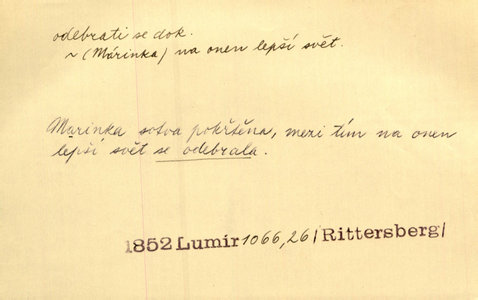 odebrati se dok.
~ (Márinka) na onen lepší svět.
Marinka sotva pokřtěna, mezi tím na onen
lepší svět se odebrala.
1852 Lumír 1066,26 /Rittersberg/